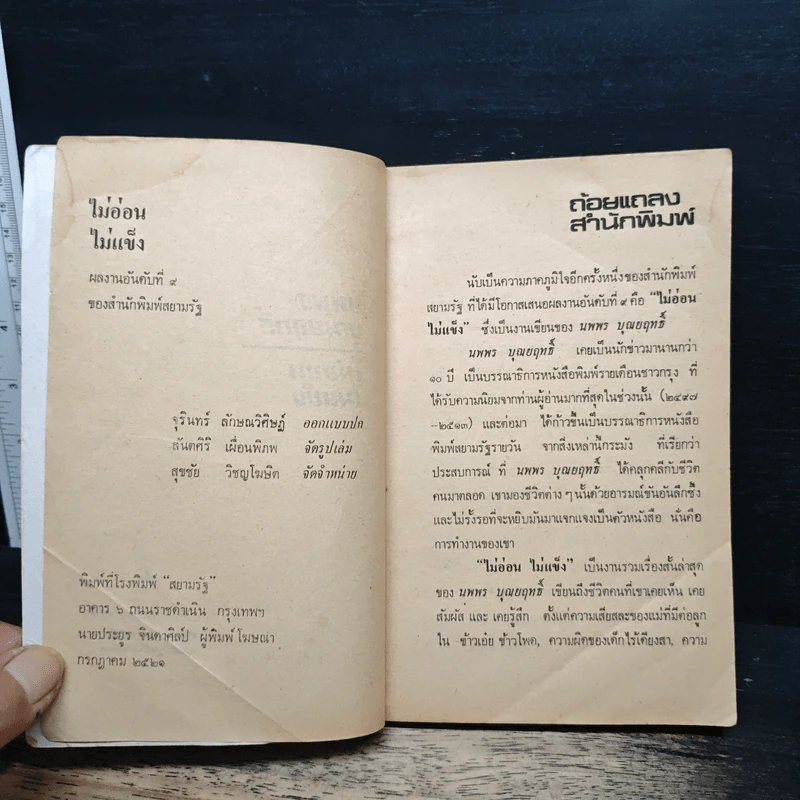 ไม่อ่อน
ไม่แข็ง
ผลงานอันดับที่ ๙
ของสำนักพิมพ์สยามรัฐ
จุรินทร์ ลักษณวิศิษฏ์ ออกแบบปก
สันตศิริ เผื่อนพิภพ จัดรูปเล่ม
สุขชัย วิชญโฆษิต จัดจำหน่าย
พิมพ์ที่โรงพิมพ์ “สยามรัฐ”
อาคาร ๖ ถนนราชดำเนิน กรุงเทพฯ
นายประยูร จินดาศิลป์ ผู้พิมพ์โฆษณา
กรกฎาคม ๒๕๒๑
ถ้อยแถลง
สำนักพิมพ์
นับเป็นความภาคภูมิใจอีกครั้งหนึ่งของสำนักพิมพ์
สยามรัฐ ที่ได้มีโอกาสเสนอผลงานอันดับที่ ๙ คือ “ไม่อ่อน
ไม่แข็ง” ซึ่งเป็นงานเขียนของ นพพร บุณยฤทธิ์
นพพร บุณยฤทธิ์ เคยเป็นนักข่าวมานานกว่า
๑๐ ปี เป็นบรรณาธิการหนังสือพิมพ์รายเดือนชาวกรุง ที่
ได้รับความนิยมจากท่านผู้อ่านมากที่สุดในช่วงนั้น (๒๔๙๗
-๒๕๑๓) และต่อมา ได้ก้าวขึ้นเป็นบรรณาธิการหนังสือ
พิมพ์สยามรัฐรายวัน จากสิ่งเหล่านี้กระมัง ที่เรียกว่า
ประสบการณ์ ที่ นพพร บุณยฤทธิ์ ได้คลุกคลีกับชีวิต
คนมาตลอด เขามองชีวิตต่าง ๆ นั้นด้วยอารมณ์ขันอันลึกซึ้ง
และไม่รั้งรอที่จะหยิบมันมาแจกแจงเป็นตัวหนังสือ นั่นคือ
การทำงานของเขา
“ไม่อ่อน ไม่แข็ง” เป็นงานรวมเรื่องสั้นล่าสุด
ของ นพพร บุณยฤทธิ์ เขียนถึงชีวิตคนที่เขาเคยเห็น เคย
สัมผัส และ เคยรู้สึก ตั้งแต่ความเสียสละของแม่ที่มีต่อลูก
ใน ข้าวเอ๋ย ข้าวโพด, ความผิดของเด็กไร้เดียงสา, ความ